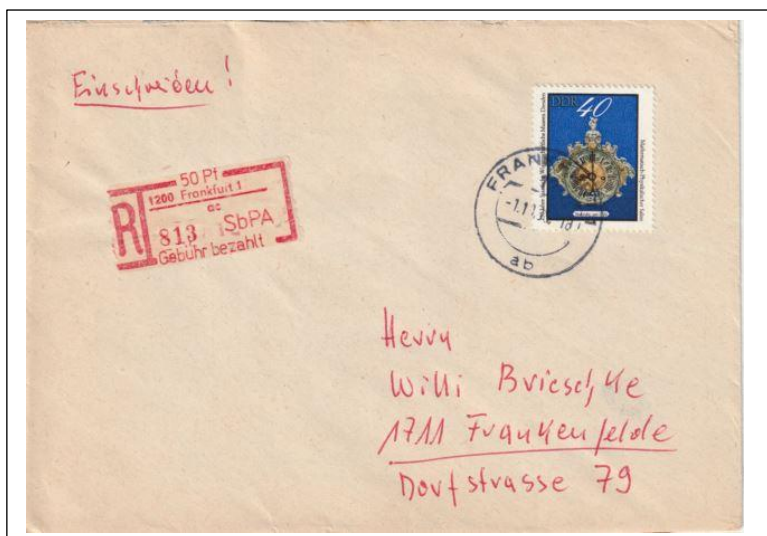 Einschreiben!
DDR 40
50 Pf
1200 Frankfurt 1
ac
R 813 SbPA
Gebühr bezahlt
FRANK
ab
Herrn
Willi Brieschke
1711 Frankenfelde
Dorfstrasse 79